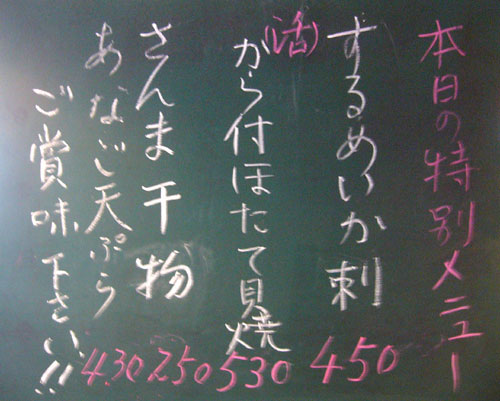 本日の特別メニュー
するめいか刺 450
(活)から付ほたて貝焼 530
さんま干物 250
あなご天ぷら 430
ご賞味下さい!!